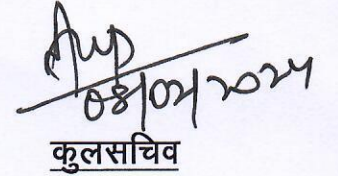 08/02/2024
कुलसचिव